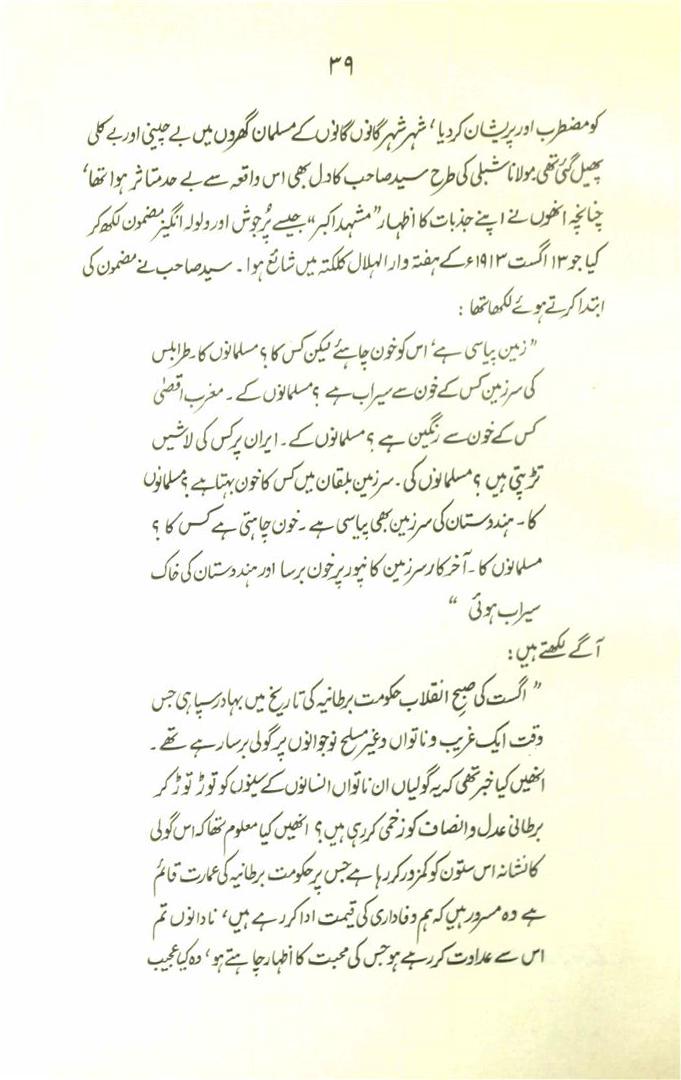 ۳۹
کو مضطرب اور پریشان کر دیا، شہر شہر گانوں گانوں کے مسلمان گھروں میں بے چینی اور بے کلی
پھیل گئی تھی مولانا شبلی کی طرح سید صاحب کا دل بھی اس واقعہ سے بے حد متاثر ہوا تھا،
چنانچہ انھوں نے اپنے جذبات کا اظہار "مشہد اکبر" جیسے پُرجوش اور ولولہ انگیز مضمون لکھ کر
کیا جو ۱۳ اگست ۱۹۱۳ء کے ہفتہ وار الہلال کلکتہ میں شائع ہوا۔ سید صاحب نے مضمون کی
ابتدا کرتے ہوئے لکھا تھا :
"زمین پیاسی ہے، اس کو خون چاہئے لیکن کس کا؟ مسلمانوں کا۔ طرابلس
کی سرزمین کس کے خون سے سیراب ہے ؟ مسلمانوں کے۔ مغرب اقصٰی
کس کے خون سے رنگین ہے ؟ مسلمانوں کے۔ ایران پر کس کی لاشیں
تڑپتی ہیں ؟ مسلمانوں کی۔ سرزمین بلقان میں کس کا خون بہتا ہے ؟ مسلمانوں
کا۔ ہندوستان کی سرزمین بھی پیاسی ہے۔ خون چاہتی ہے کس کا ؟
مسلمانوں کا۔ آخر کار سرزمین کانپور پر خون برسا اور ہندوستان کی خاک
سیراب ہوئی "
آگے لکھتے ہیں :
" اگست کی صبح انقلاب حکومت برطانیہ کی تاریخ میں بہادر سپاہی جس
وقت ایک غریب و ناتواں و غیر مسلح نوجوانوں پر گولی برسا رہے تھے۔
انھیں کیا خبر تھی کہ یہ گولیاں ان ناتواں انسانوں کے سینوں کو توڑ توڑ کر
برطانی عدل و انصاف کو زخمی کر رہی ہیں ؟ انھیں کیا معلوم تھا کہ اس گولی
کا نشانہ اس ستون کو کمزور کر رہا ہے جس پر حکومت برطانیہ کی عمارت قائم
ہے وہ مسرور ہیں کہ ہم وفاداری کی قیمت ادا کر رہے ہیں، نادانوں تم
اس سے عداوت کر رہے ہو جس کی محبت کا اظہار چاہتے ہو، وہ کیا عجیب